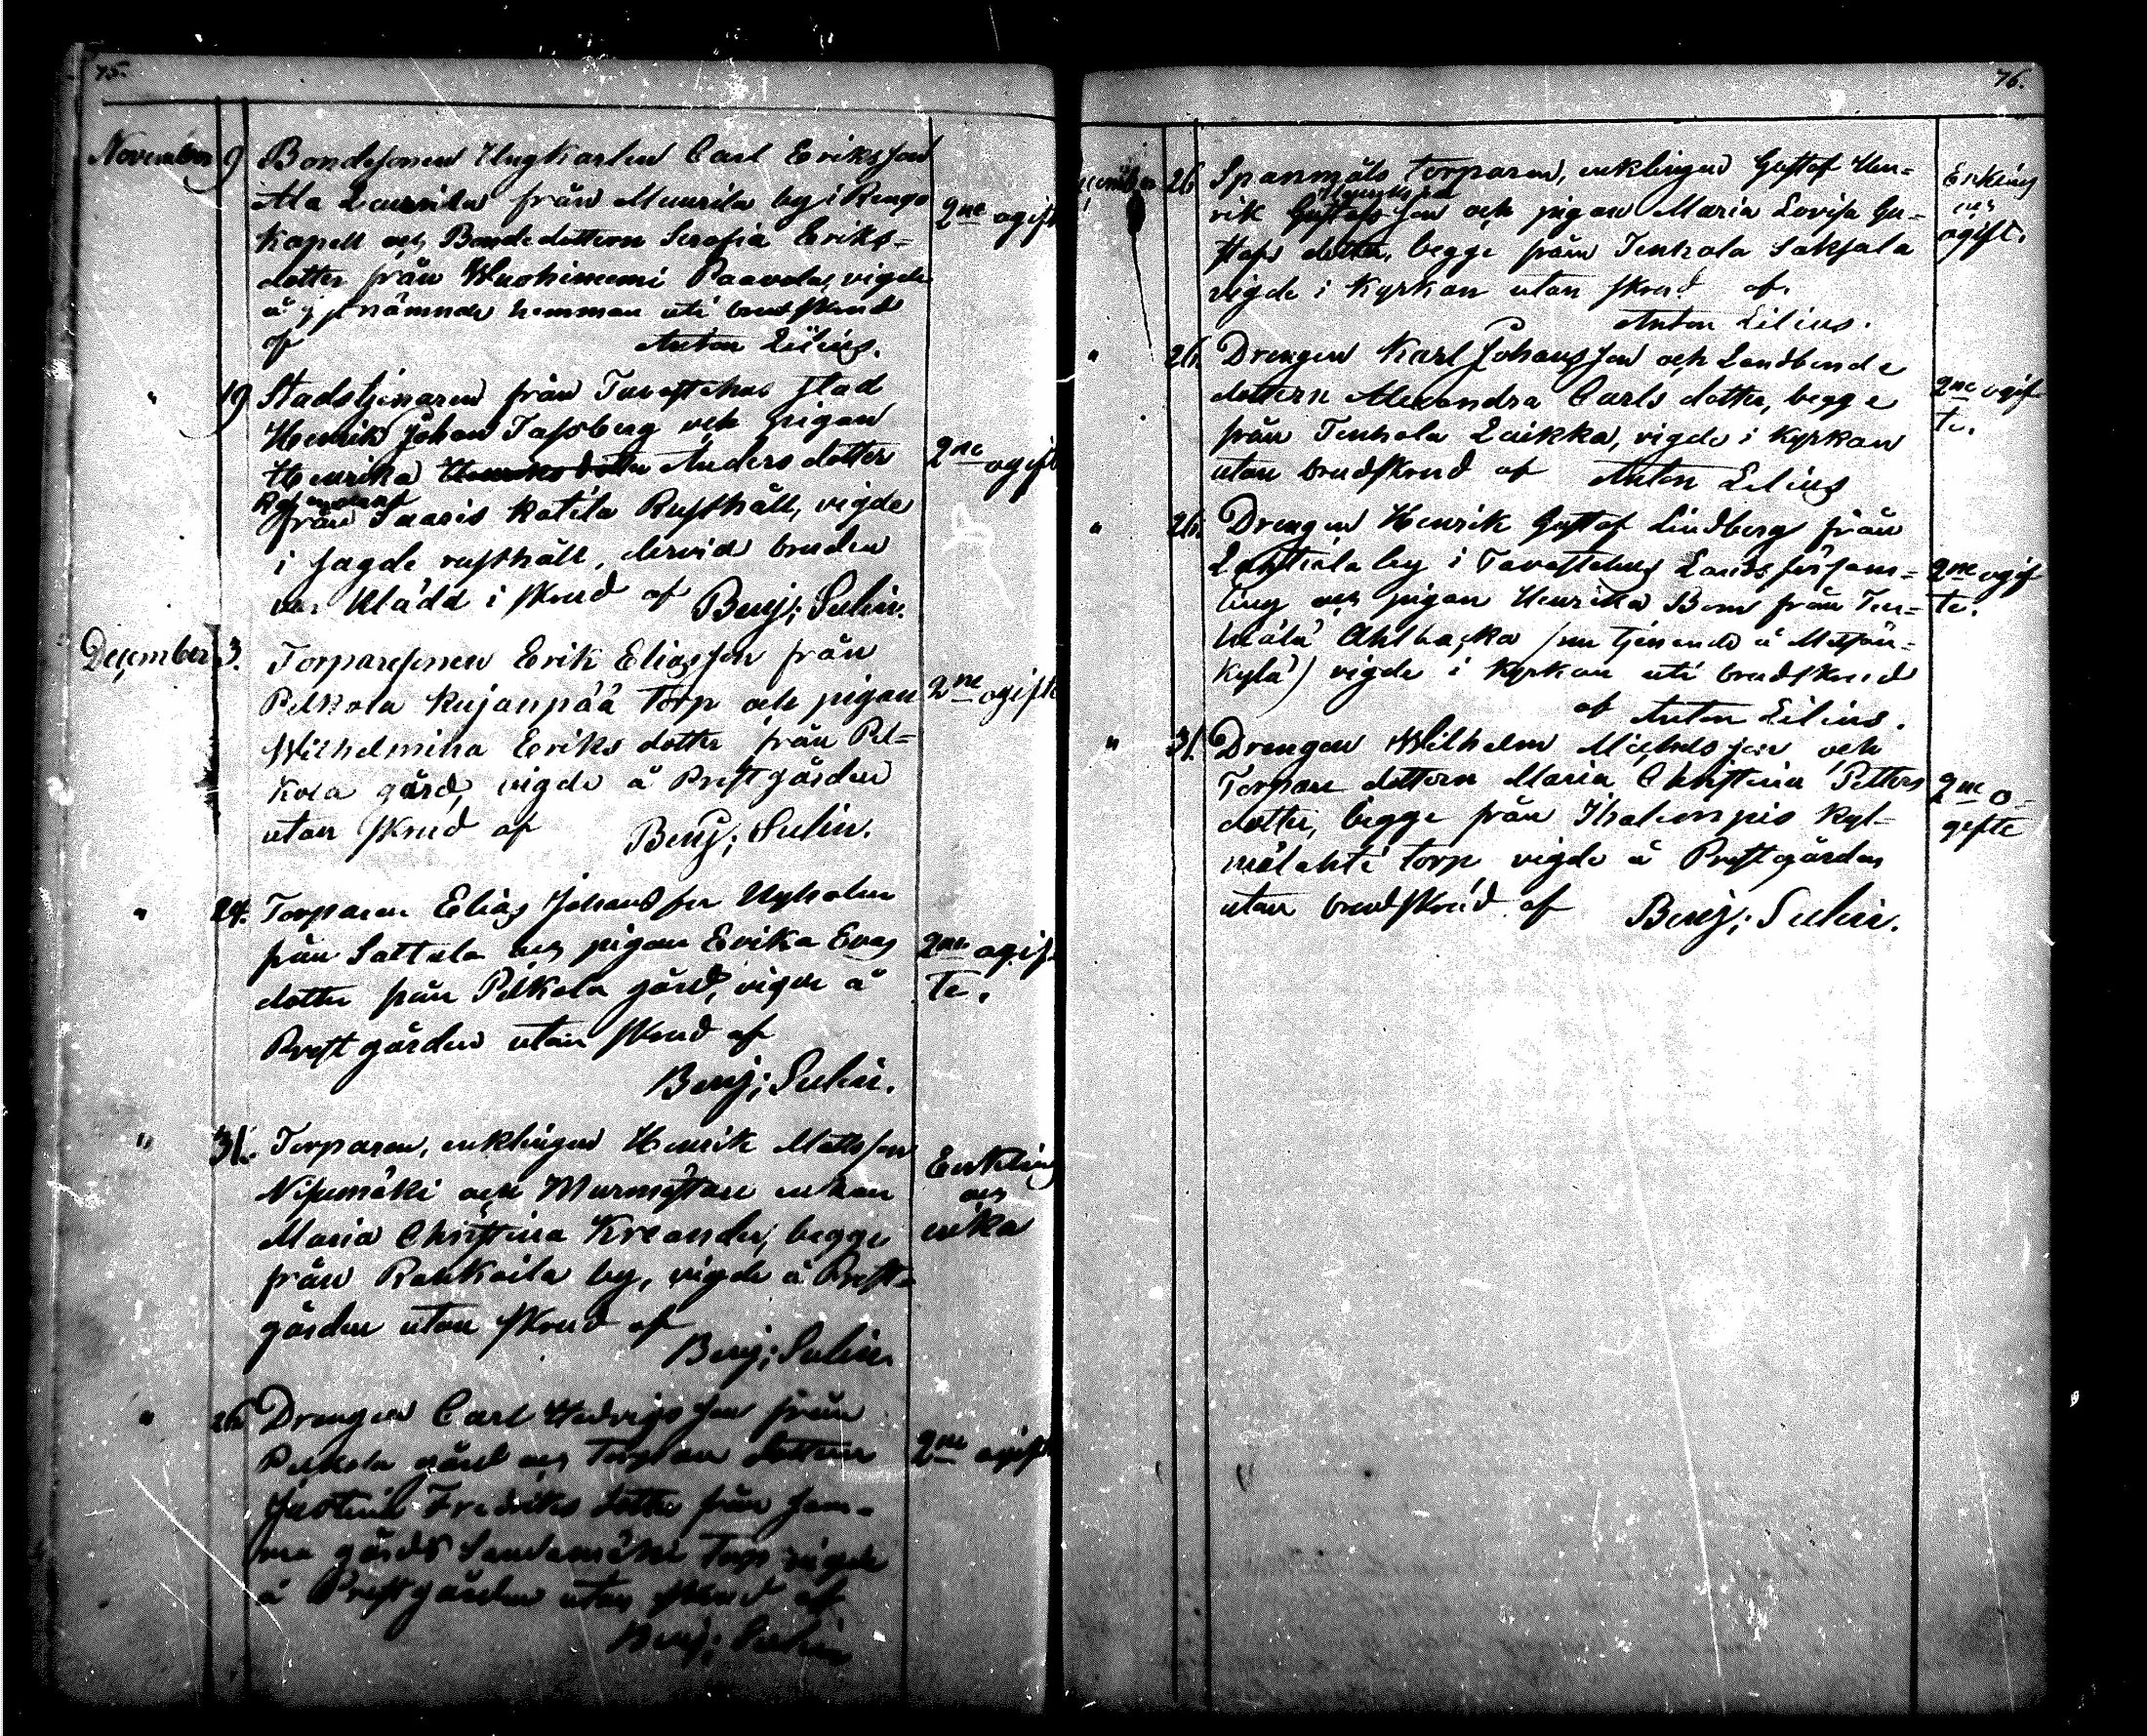 75.
November 9 Bondesonen Ungkarlen Carl Eriksson
Ala Laurila från Muurila by i Rengo
Kapell och Bondedottern Serafia Eriks-
dotter från Wuohiniemi Paavola, vigde
å nämnde hemman uti brudskrud
af Anton Lilius.
2ne ogift
" 19 Stadstjenaren från Tavastehus stad
Henrik Johan Tassberg och pigan
Henrika Henriksdotter Anders dotter
från Saaris Katila Rusthåll, vigde
i sagde rusthåll, dervid bruden
var klädd i skrud af Benj; Sulin.
2ne ogift
December 3. Torparesonen Erik Eliasson från
Pelkola Kujanpää Torp och pigan
Wilhelmina Eriks dotter från Pel-
kola gård, vigde å Prestgården
utan skrud af Benj; Sulin.
2ne ogifte
" 24. Torparen Elias Johansson Nyholm
från Sattula och pigan Erika Evas
dotter från Pelkola gård, vigde å
Prestgården utan skrud af
Benj; Sulin.
2ne ogif-
te.
" 31. Torparen, enklingen Henrik Matsson
Nisumäki och Murmästare enkan
Maria Christina Kreander, begge
från Rahkoila by, vigde å Prest-
gården utan skrud af
Benj; Sulin
Enkling
och
enka
" 26 Drengen Carl Hedvigsson från
Pelkola gård och Torpare dottern
Justina Fredriks dotter från sam-
ma gårds Sandamäki Torp vigde
å Prestgården utan skrud af
Benj; Sulin
2ne ogift
76.
December 26 Spanmåls torparen, enklingen Gustaf Hen-
Henriksson
rik Gustafsson och pigan Maria Lovisa Gu-
stafs dotter, begge från Tenhola Saksala
vigde i Kyrkan utan skrud af.
Anton Lilius.
Enkling
och
ogift.
" 26 Drengen Karl Johansson och Landbonde
dottern Alexandra Carls dotter, begge
från Tenhola Laikka, vigde i Kyrkan
utan brudskrud af Anton Lilius
2ne ogif-
te.
" 26. Drengen Henrik Gustaf Lindberg från
Luhtiala by i Tavastehus Lands försam-
ling och pigan Henrika Bom från Ten-
hiälä Ahlbacka (nu tjenande å Metsän-
kylä) vigde i Kyrkan uti brudskrud
af Anton Lilius.
2ne ogif
te.
" 31. Drengen Wilhelm Michelsson och
Torpare dottern Maria Christina Petters
dotter, begge från Ihalempis Kyl-
mälahti torp, vigde å Prestgården
utan brudskrud af Benj; Sulin.
2ne o-
gifte